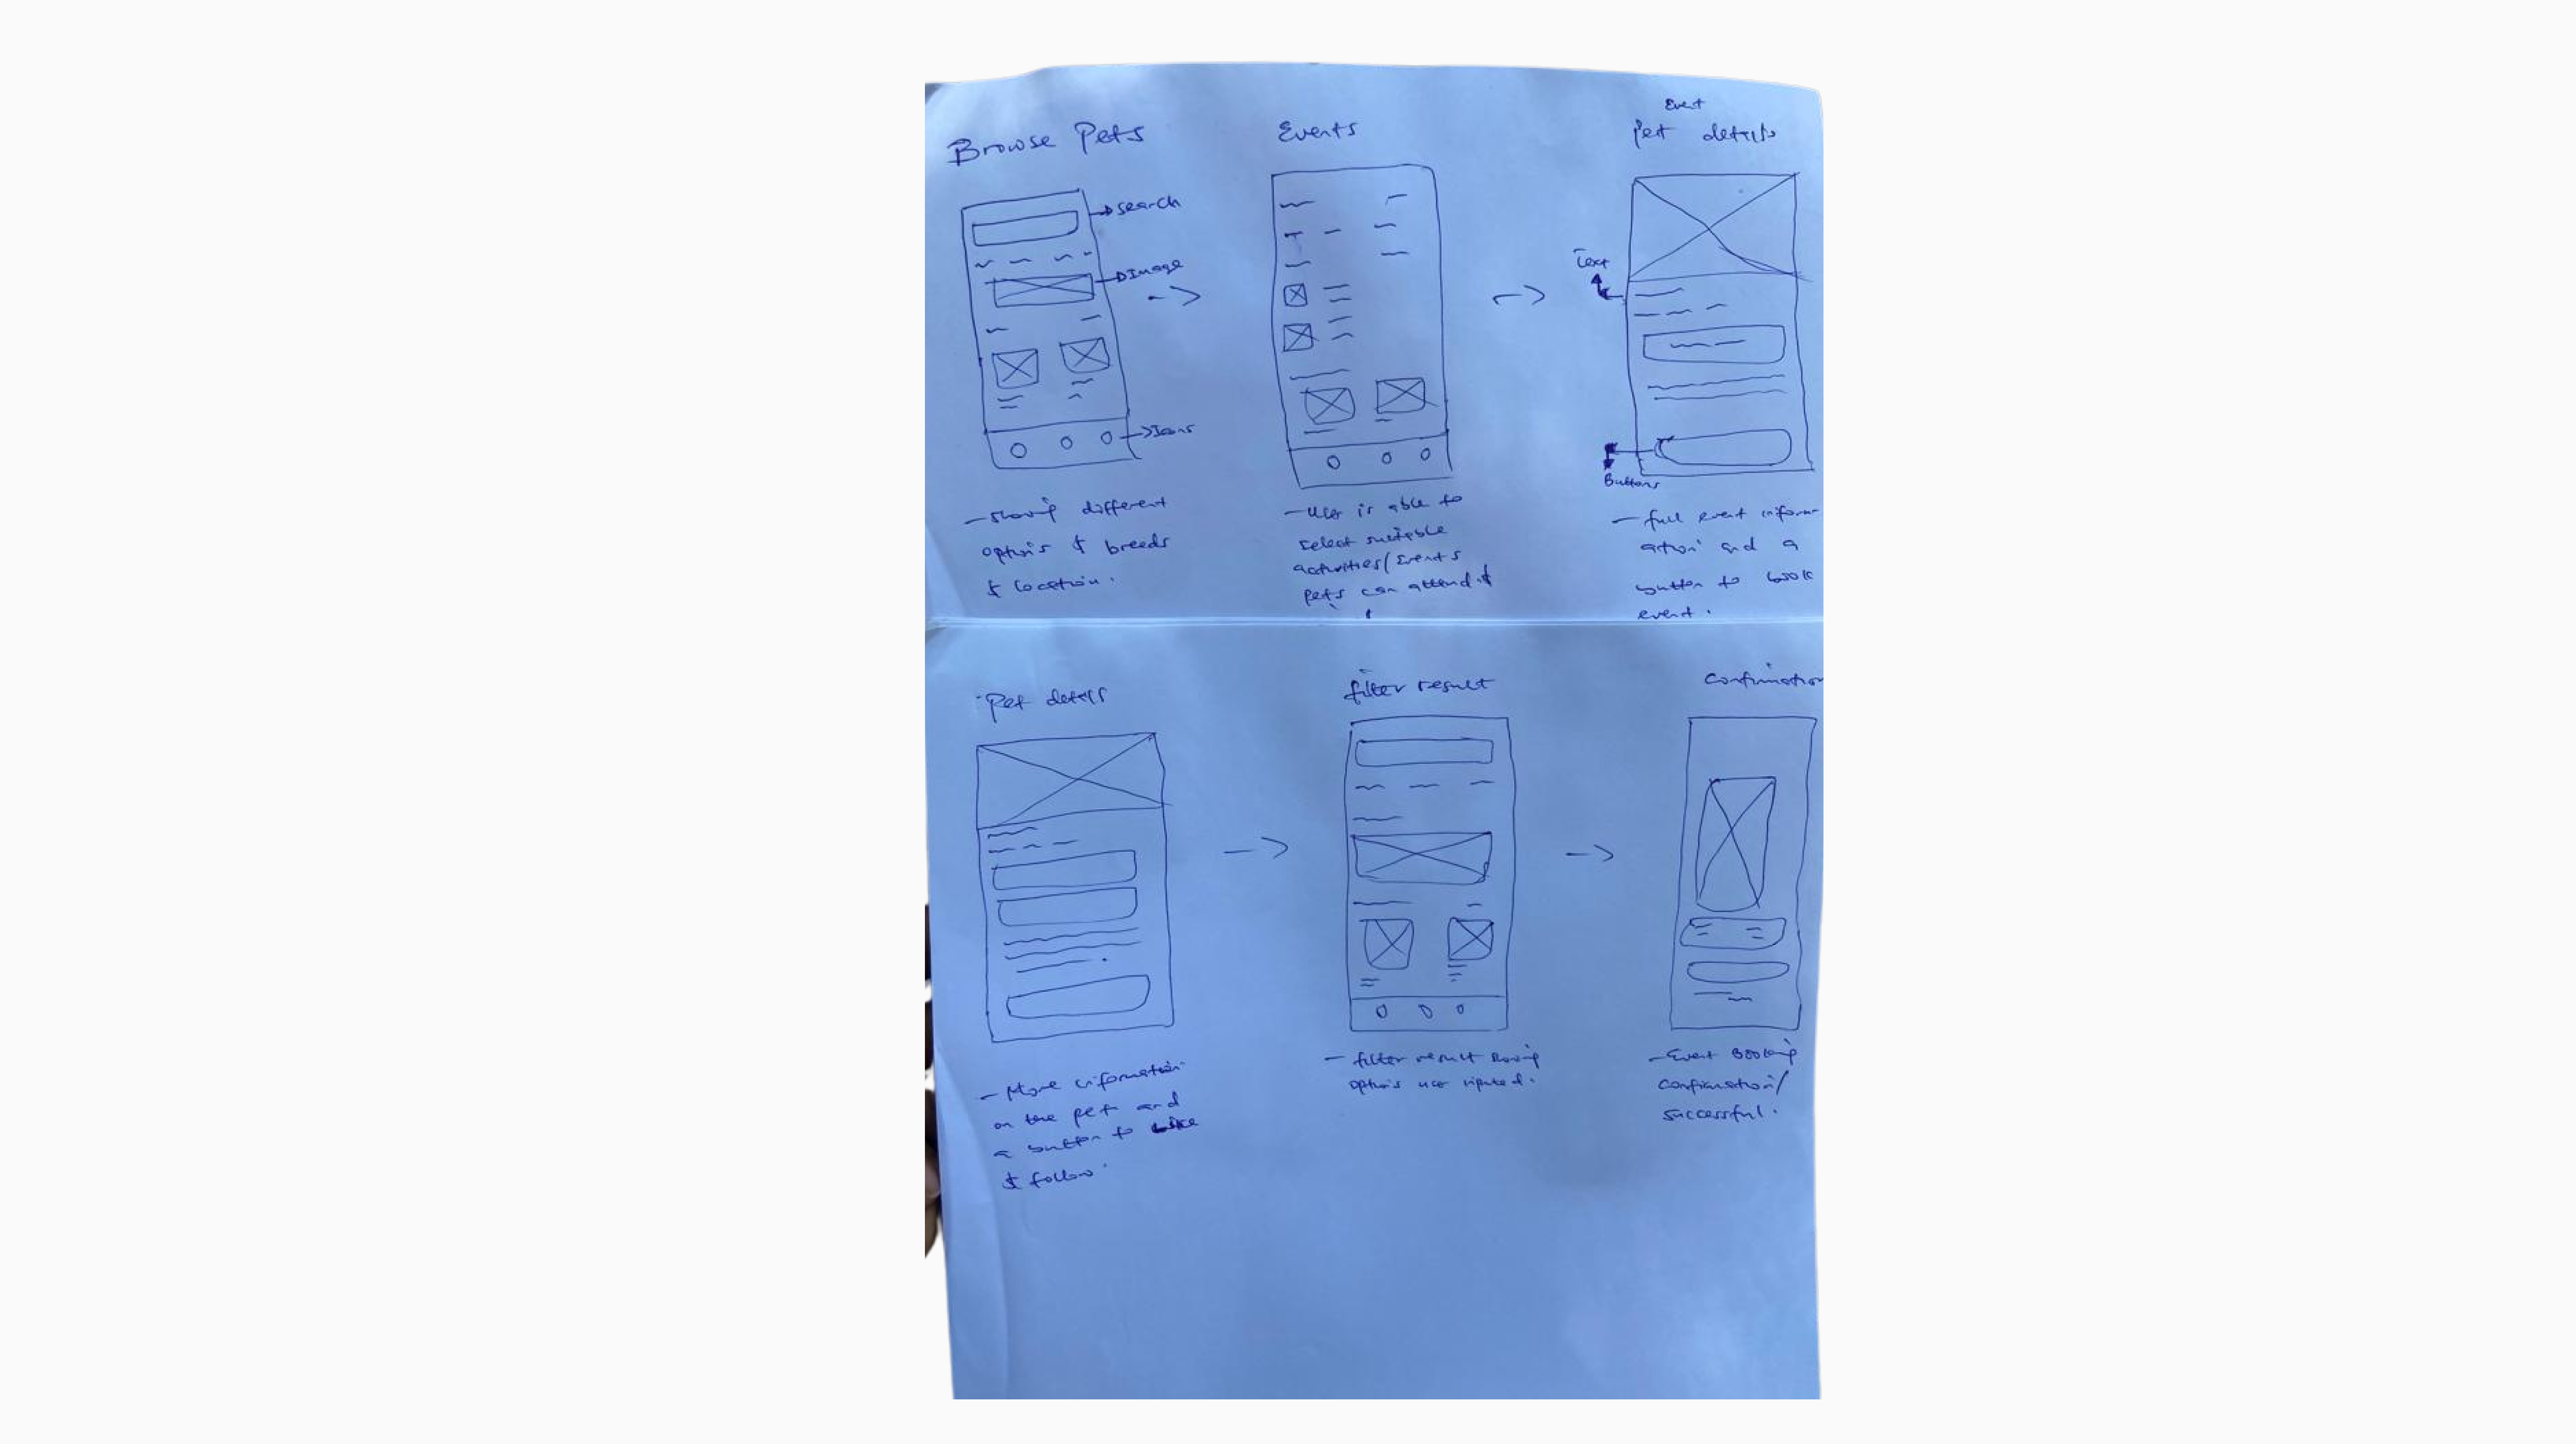 Browse Pets
→ search
→ Image
→ Icons
- showing different
options & breeds
& location.
Events
- User is able to
select suitable
activities/Events
pets can attend &
Event
Pet details
Text
Buttons
- full event inform-
ation and a
button to book
event.
Pet details
- More information
on the pet and
a button to like
& follow
filter result
- filter result showing
options user inputed.
Confirmation
- Event Booking
confirmation/
successful.